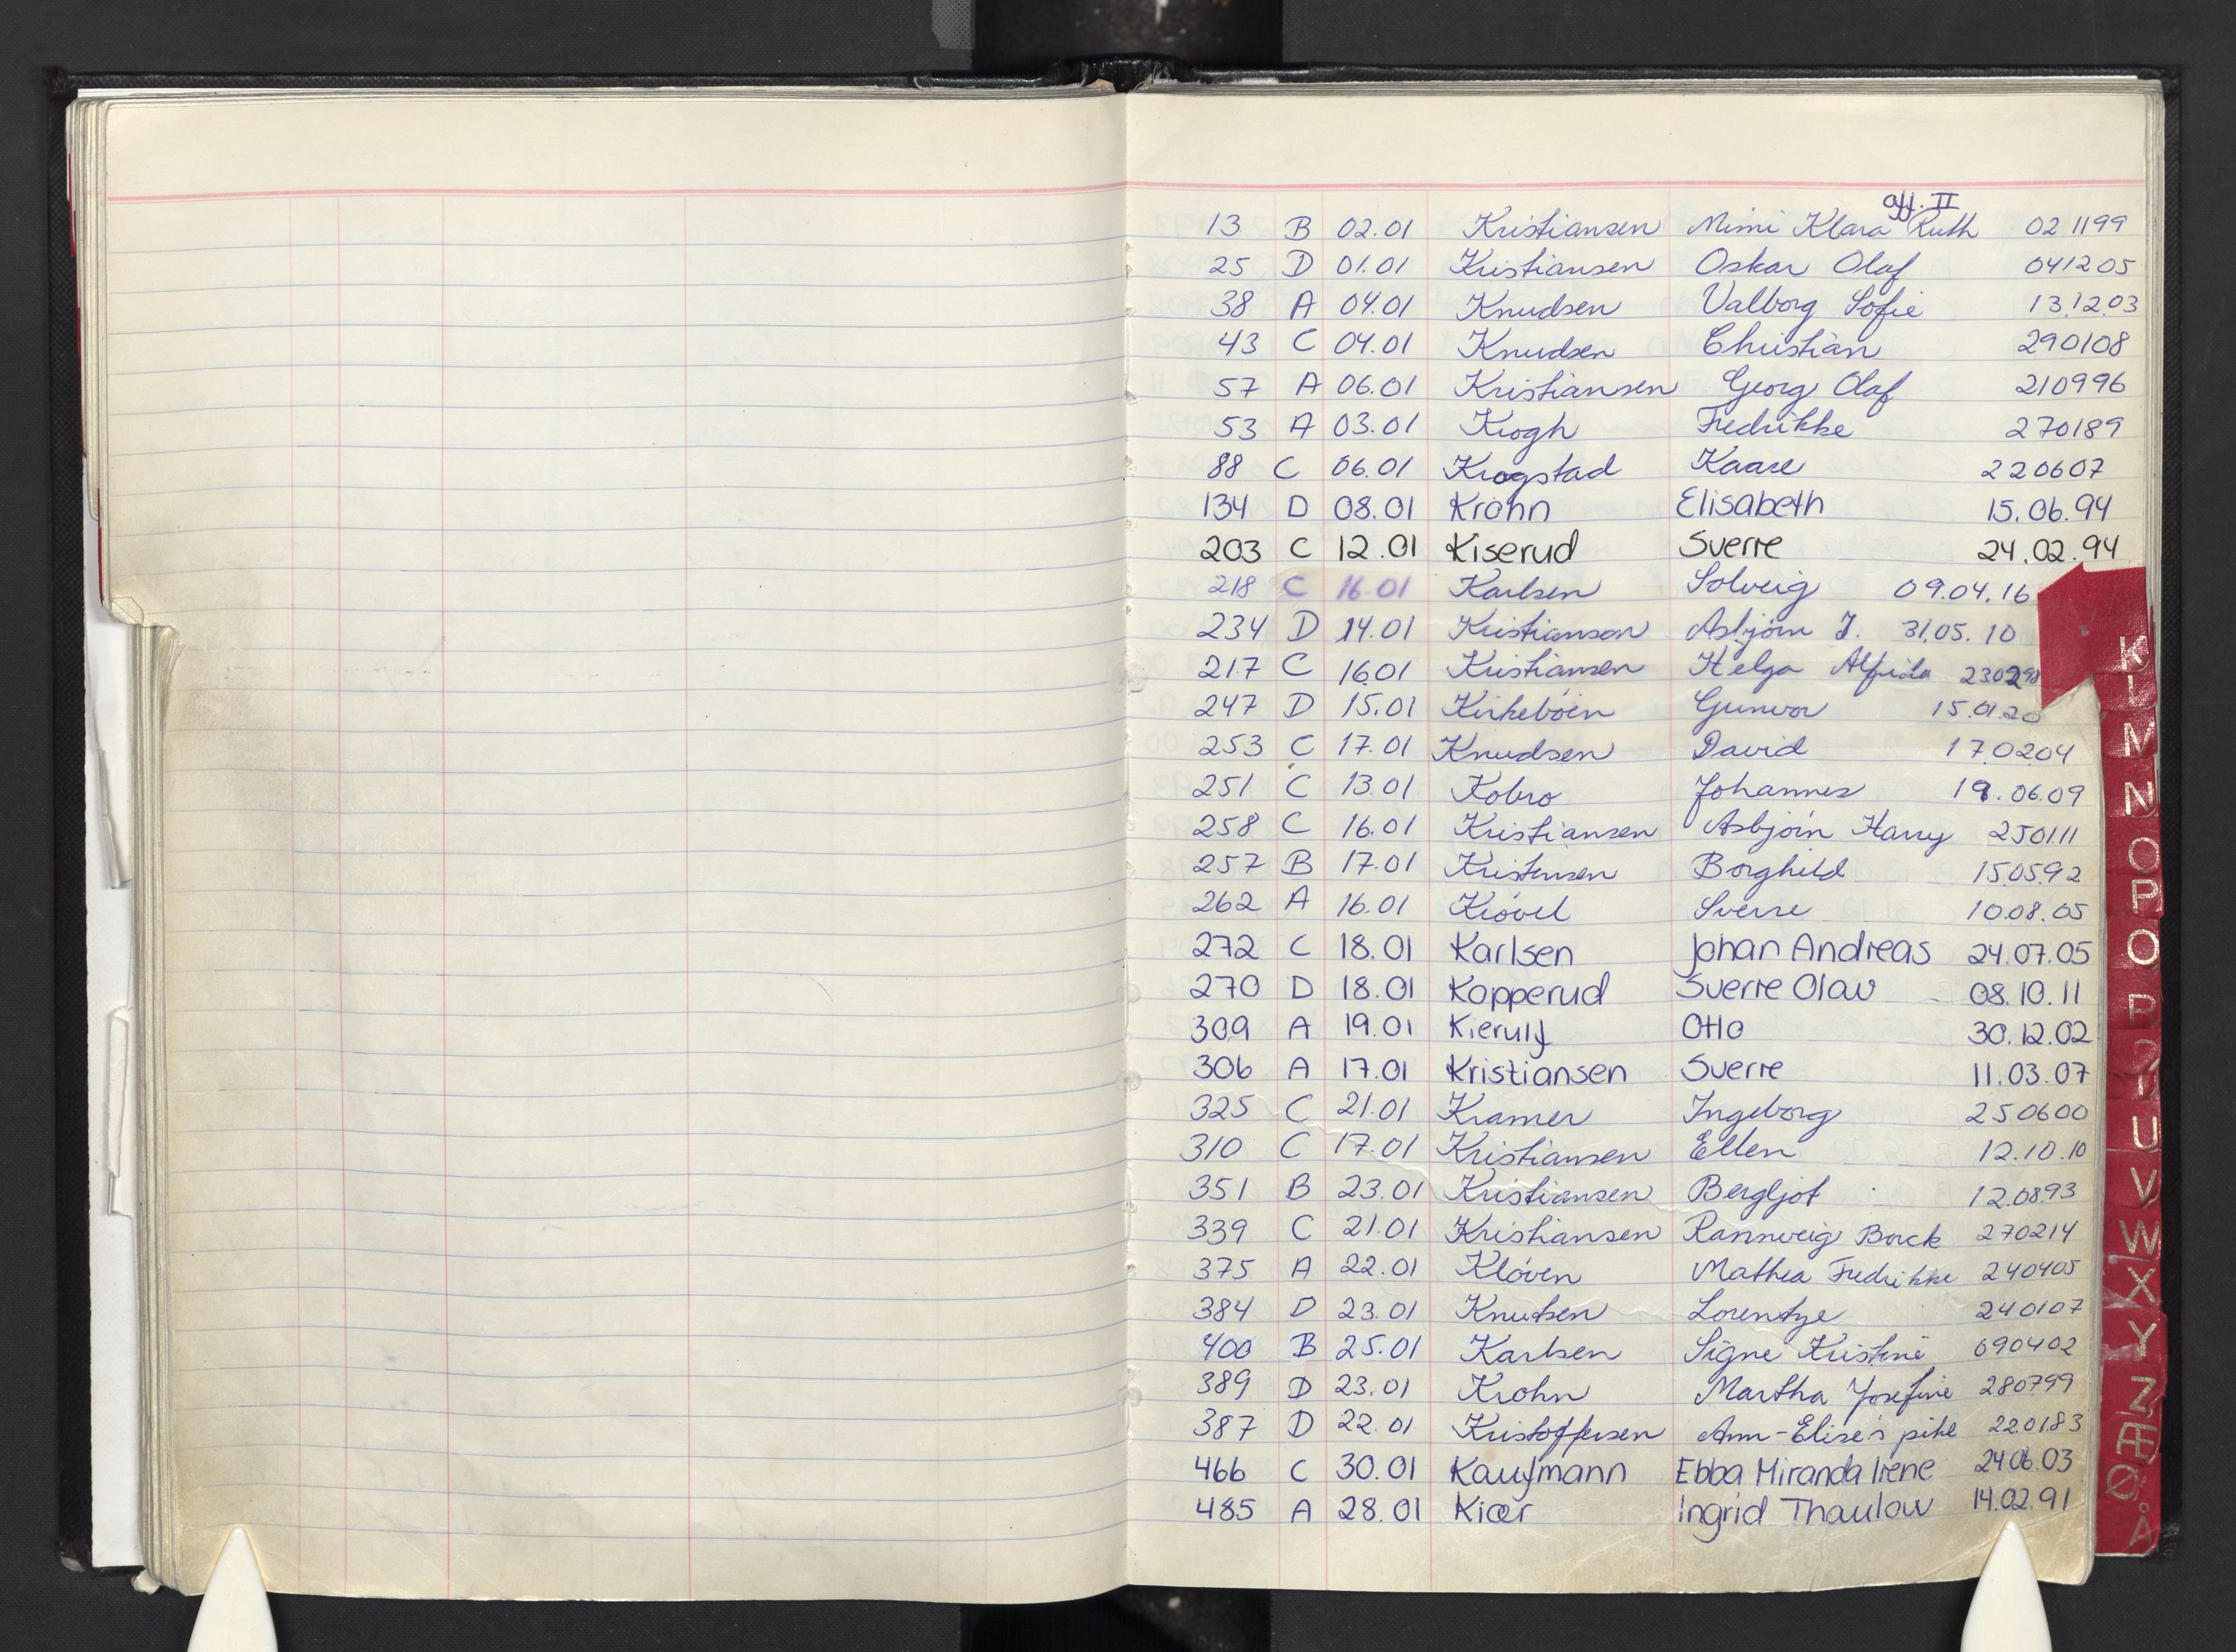 aff. II
13 B 02.01 Kristiansen Mimi Klara Ruth 02 1199
25 D 01.01 Kristiansen Oskar Olaf 041205
38 A 04.01 Knudsen Valborg Sofie 13.12.03
43 C 04.01 Knudsen Christian 290108
57 A 06.01 Kristiansen Georg Olaf 210996
53 A 03.01 Krogh Fredrikke 270189
88 C 06.01 Krogstad Kaare 220607
134 D 08.01 Krohn Elisabeth 15.06.94
203 C 12.01 Kiserud Sverre 24.02.94
218 C 16.01 Karlsen Solveig 09.04.16
234 D 14.01 Kristianson Asbjørn J. 31.05.10
217 C 16.01 Kristiansen Helga Alfrida 230298
247 D 15.01 Kirkebøen Gunvor 15.01.20
253 C 17.01 Knudsen David 170204
251 C 13.01 Kobro Johannes 19.06.09
258 C 16.01 Kristiansen Asbjørn Harry 250111
257 B 17.01 Kristensen Borghild 150592
262 A 16.01 Krøvel Sverre 10.08.05
272 C 18.01 Karlsen Johan Andreas 24.07.05
270 D 18.01 Kopperud Sverre Olav 08.10.11
309 A 19.01 Kierulf Otto 30.12.02
306 A 17.01 Kristiansen Sverre 11.03.07
325 C 21.01 Kramer Ingeborg 250600
310 C 17.01 Kristiansen Ellen 12.10.10
351 B 23.01 Kristiansen Bergljot 12.0893
339 C 21.01 Kristiansen Rannveig Borck 270214
375 A 22.01 Kløven Mathea Fredrikke 240405
384 D 23.01 Knutsen Lorentze 240107
400 B 25.01 Karlsen Signe Kristine 090402
389 D 23.01 Krohn Martha Josefine 280799
387 D 22.01 Kristoffersen Ann-Elise's pike 220183
466 C 30.01 Kaufmann Ebba Miranda Irene 24.06.03
485 A 28.01 Kiær Ingrid Thaulow 14.02.91
K
L
M
N
O
P
U
V
W
X
Y
Z
Æ
Ø
Å